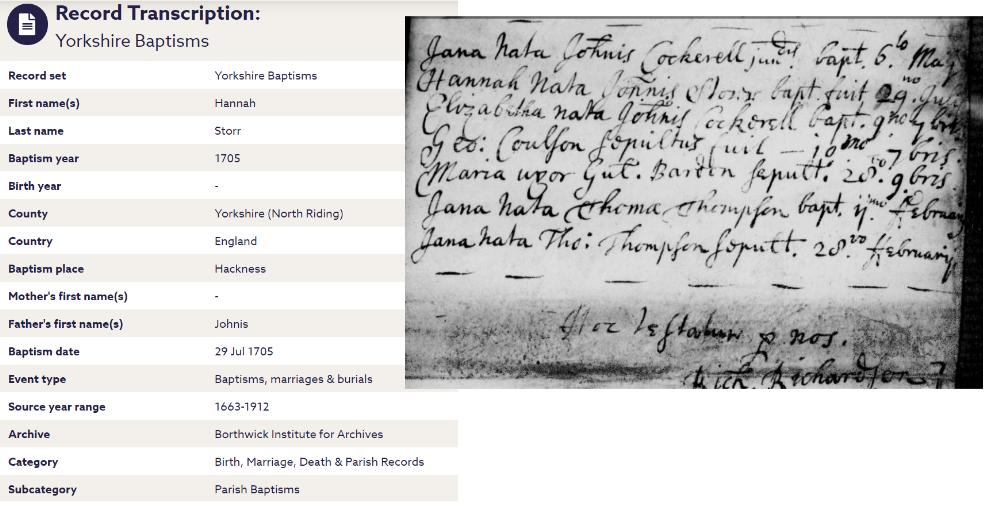 Record Transcription:
Yorkshire Baptisms
Record set Yorkshire Baptisms
First name(s) Hannah
Last name Storr
Baptism year 1705
Birth year -
County Yorkshire (North Riding)
Country England
Baptism place Hackness
Mother's first name(s) -
Father's first name(s) Johnis
Baptism date 29 Jul 1705
Event type Baptisms, marriages & burials
Source year range 1663-1912
Archive Borthwick Institute for Archives
Category Birth, Marriage, Death & Parish Records
Subcategory Parish Baptisms
Jana Nata Johnis Cockerell jun bapt. 6.to May
Hannah Nata Johnis Storr bapt. fuit 29.no
Elizabetha nata Johnis Cockerell bapt. 9no 7bris
Geo: Coulson sepultus fuit — 10mo 7bris.
Maria uxor Gul. Barton sepult. 28.vo 9bris.
Jana Nata Thoma Thompson bapt. 11.mo Februar
Jana Nata Tho: Thompson sepult. 28.vo Februarij
Hoc testatur p nos.
Rich. Richardson